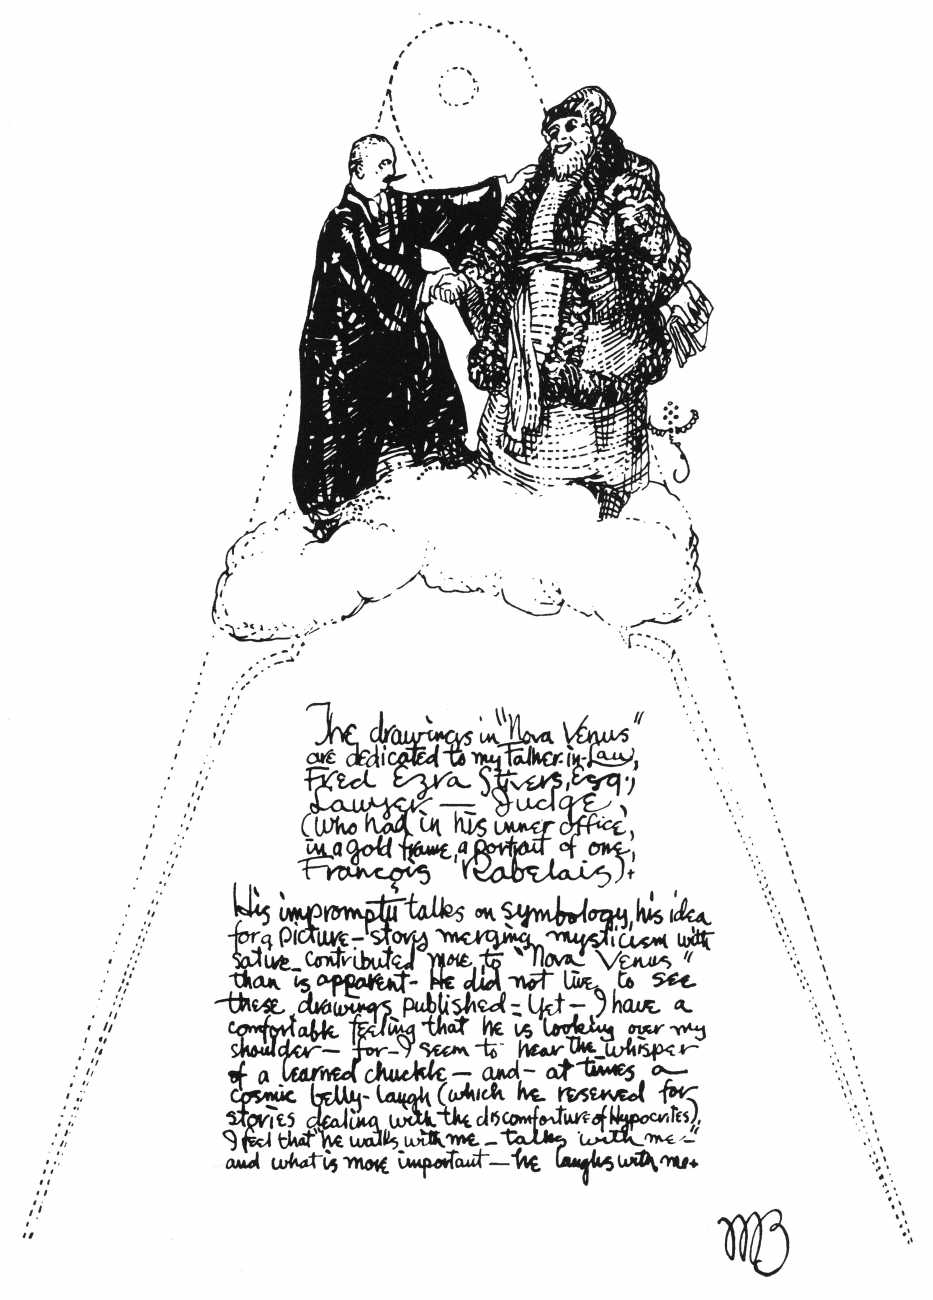 The drawings in "Nova Venus"
are dedicated to my Father-in-Law,
Fred Ezra Stivers, Esq.,
Lawyer — Judge,
(who had in his inner office,
in a gold frame, a portrait of one,
François Rabelais).
His impromptu talks on symbology, his idea
for a picture-story merging mysticism with
satire contributed more to "Nova Venus"
than is apparent - He did not live to see
these drawings published - Yet - I have a
comfortable feeling that he is looking over my
shoulder — for - I seem to hear the whisper
of a learned chuckle — and - at times a
cosmic belly-laugh (which he reserved for
stories dealing with the discomforture of Hypocrites).
I feel that "he walks with me - talks with me -"
and what is more important — he laughs with me.
MB